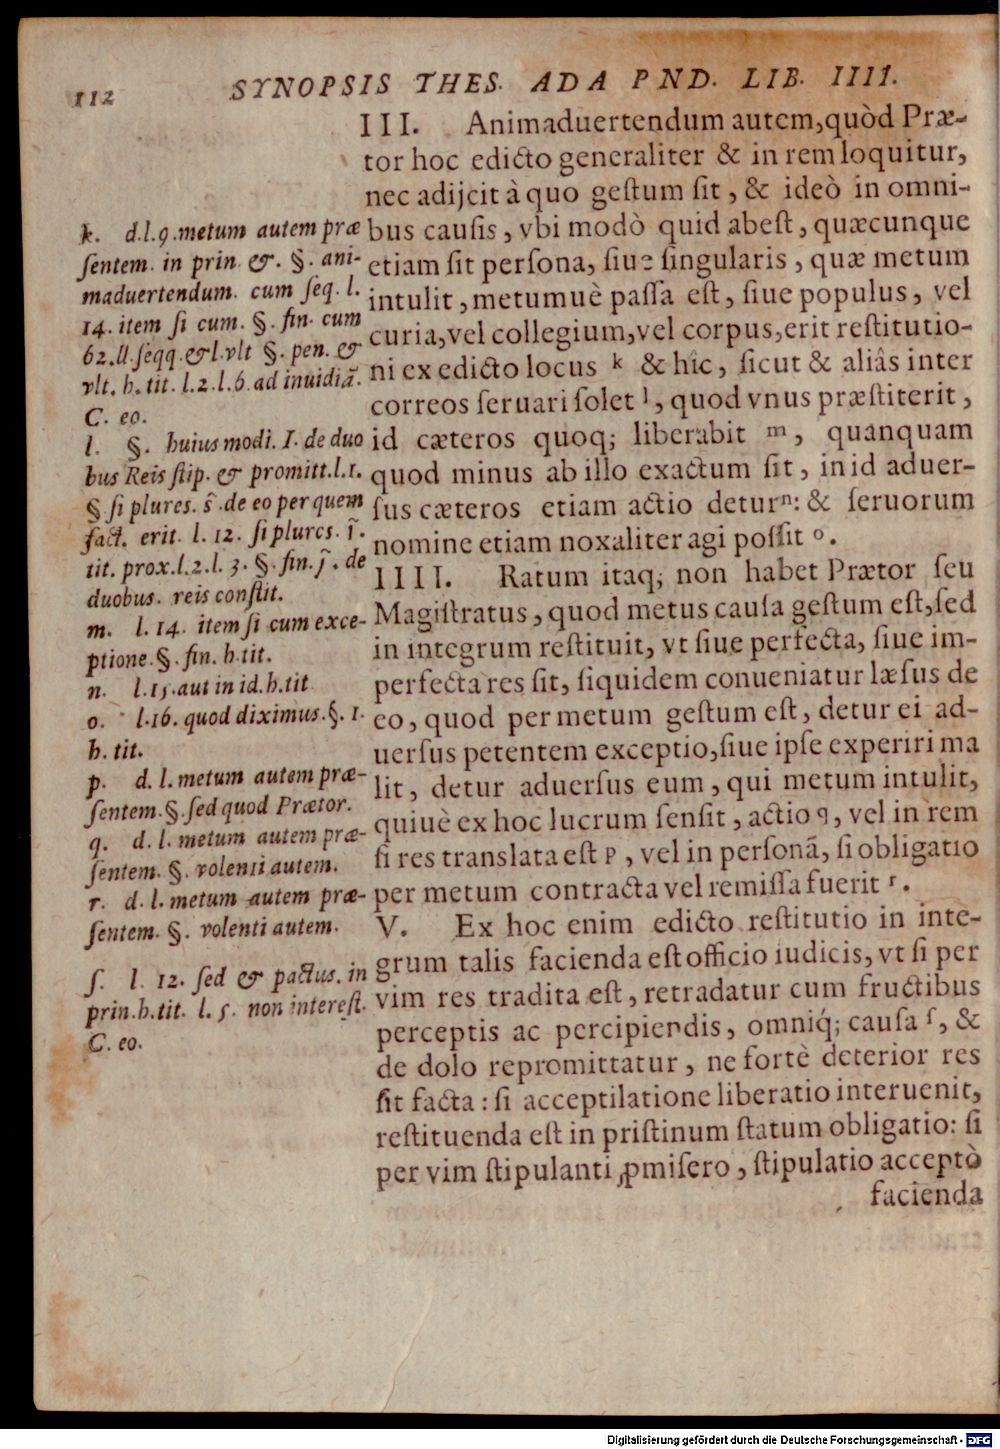 112 SYNOPSIS THES. AD A PND. LIB. IIII.
III. Animaduertendum autem, quòd Præ-
tor hoc edicto generaliter & in rem loquitur,
nec adijcit à quo geſtum ſit, & ideò in omni-
bus cauſis, vbi modò quid abeſt, quæcunque
etiam ſit perſona, ſiue ſingularis, quæ metum
intulit, metumuè paſſa eſt, ſiue populus, vel
curia, vel collegium, vel corpus, erit reſtitutio-
ni ex edicto locus k & hic, ſicut & aliâs inter
correos ſeruari ſolet l, quod vnus præſtiterit,
id cæteros quoq; liberabit m, quanquam
quod minus ab illo exactum ſit, in id aduer-
ſus cæteros etiam actio detur n: & ſeruorum
nomine etiam noxaliter agi poſſit o.
IIII. Ratum itaq; non habet Prætor ſeu
Magiſtratus, quod metus cauſa geſtum eſt, ſed
in integrum reſtituit, vt ſiue perfecta, ſiue im-
perfecta res ſit, ſiquidem conueniatur læſus de
eo, quod per metum geſtum eſt, detur ei ad-
uerſus petentem exceptio, ſiue ipſe experiri ma
lit, detur aduerſus eum, qui metum intulit,
quiuè ex hoc lucrum ſenſit, actio q, vel in rem
ſi res translata eſt p, vel in perſonã, ſi obligatio
per metum contracta vel remiſſa fuerit r.
V. Ex hoc enim edicto reſtitutio in inte-
grum talis facienda eſt officio iudicis, vt ſi per
vim res tradita eſt, retradatur cum fructibus
perceptis ac percipiendis, omniq́; cauſa ſ, &
de dolo repromittatur, ne fortè deterior res
ſit facta: ſi acceptilatione liberatio interuenit,
reſtituenda eſt in priſtinum ſtatum obligatio: ſi
per vim ſtipulanti ꝓmiſero, ſtipulatio acceptò
facienda
k. d.l.9.metum autem præ
ſentem. in prin. &. §. ani-
maduertendum. cum ſeq. l.
14. item ſi cum. §. fin. cum
62.ll.ſeqq.&l.vlt §. pen. &
vlt. h. tit. l.2.l.6.ad inuidiã.
C. eo.
l. §. huiusmodi. I. de duo
bus Reis ſtip. & promitt.l.1.
§. ſi plures. s̃.de eo per quem
fact. erit. l. 12. ſi plures. ĩ.
tit. prox.l.2.l. 3. §. fin. j̃. de
duobus. reis conſtit.
m. l. 14. item ſi cum exce-
ptione.§. fin. h.tit.
n. l.15.aut in id.h.tit
o. l.16. quod diximus.§. 1.
h. tit.
p. d. l. metum autem præ-
ſentem.§.ſed quod Prætor.
q. d. l. metum autem præ-
ſentem. §. volenti autem.
r. d. l. metum autem præ-
ſentem. §. volenti autem.
ſ. l. 12. ſed & pactus. in
prin.h.tit. l. 5. non intereſt.
C. eo.
Digitalisierung gefördert durch die Deutsche Forschungsgemeinschaft - DFG